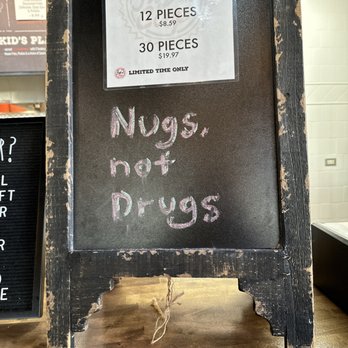 KID'S PL
12 PIECES
$8.59
30 PIECES
$19.97
LIMITED TIME ONLY
Nugs,
not
Drugs
?
L
FT
R
R
O
E